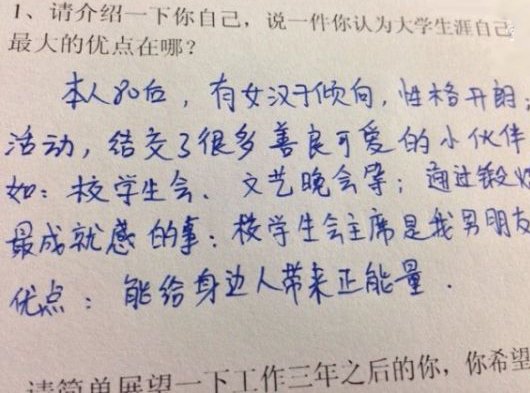 1、请介绍一下你自己，说一件你认为大学生涯自己
最大的优点在哪？
本人80后，有女汉子倾向，性格开朗，
活动，结交了很多善良可爱的小伙伴
如：校学生会、文艺晚会等；通过锻炼
最成就感的事：校学生会主席是我男朋友
优点：能给身边人带来正能量．
请简单展望一下工作三年之后的你，你希望